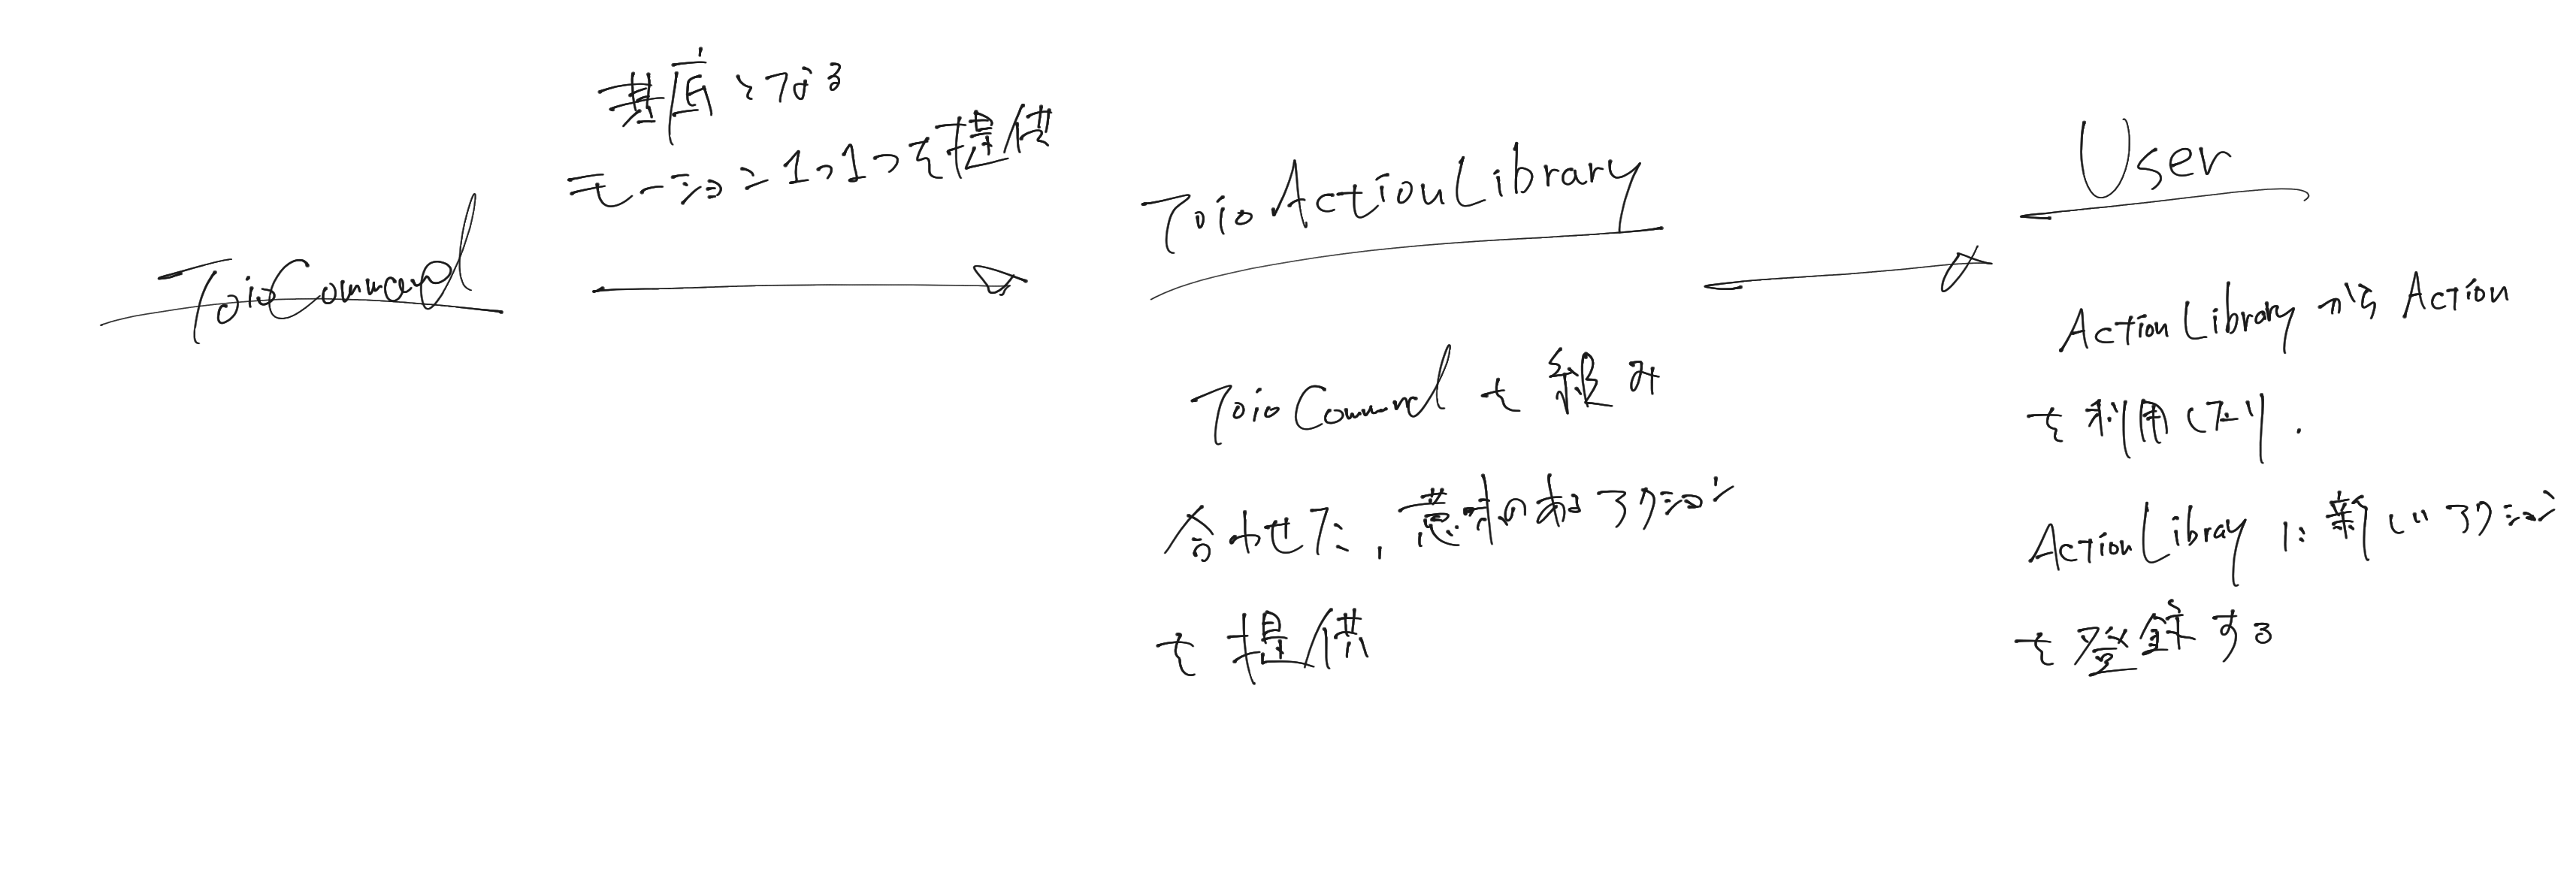 ToioCommand
基底となる
モーション1つ1つを提供
ToioActionLibrary
ToioCommandを組み
合わせた,意味のあるアクション
を提供
User
ActionLibraryからAction
を利用したり.
ActionLibrayに新しいアクション
を登録する